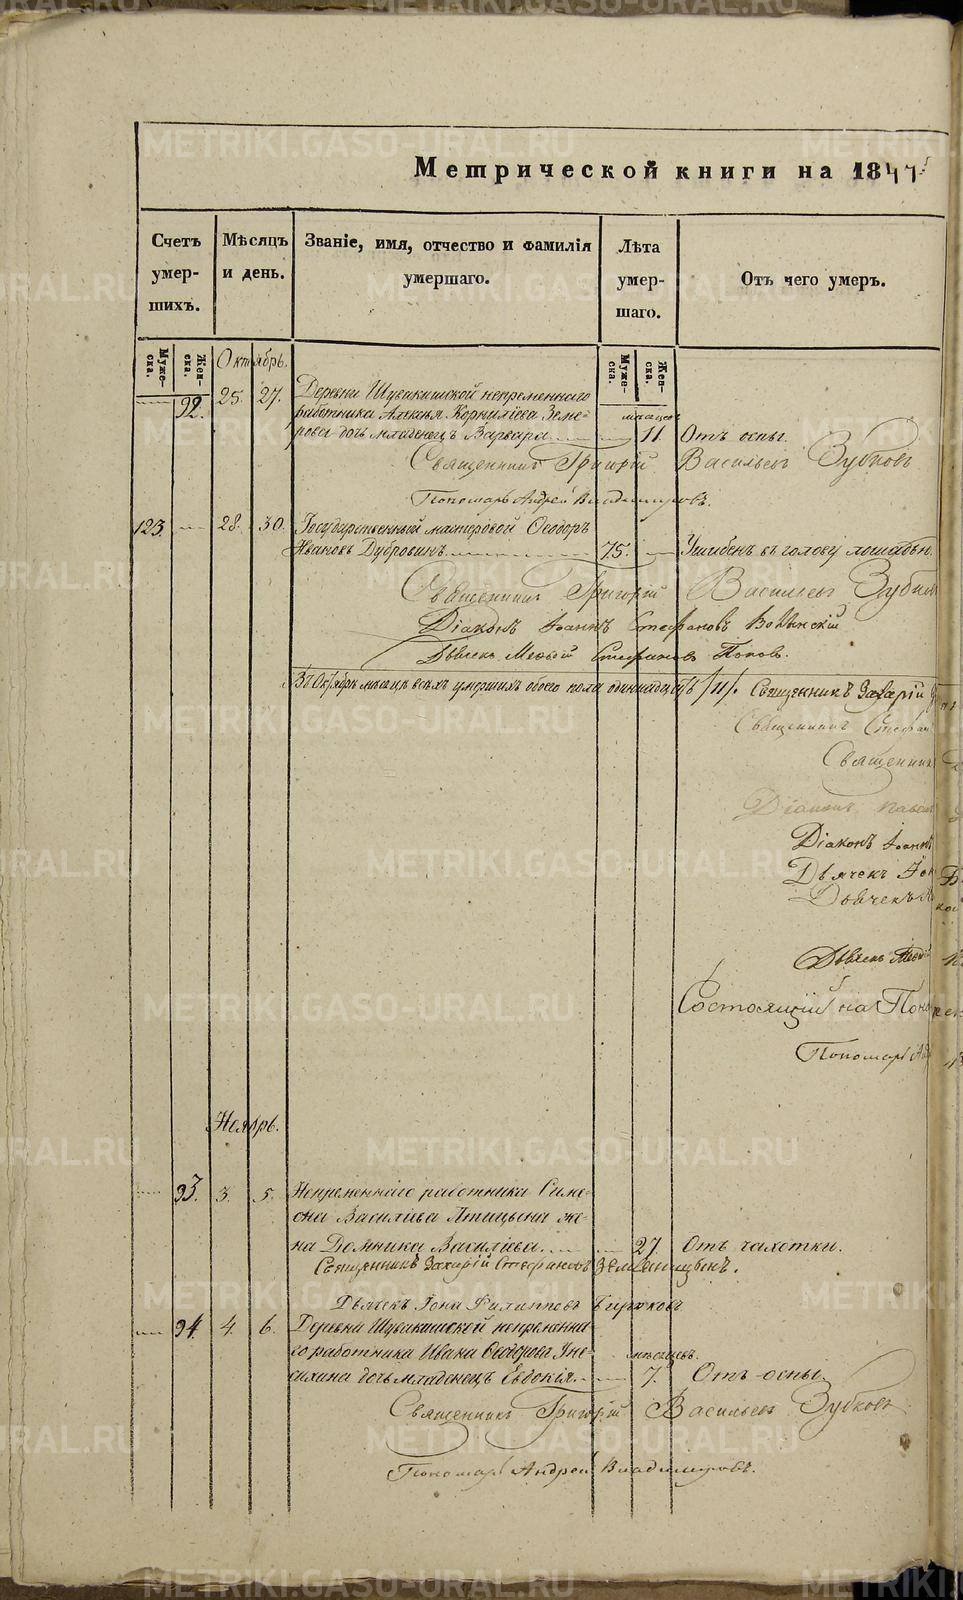 Метрической книги на 1847
Счетъ умер-шихъ.
Мѣсяцъ и день.
Званіе, имя, отчество и фамилія умершаго.
Лѣта умер-шаго.
Отъ чего умеръ.
Муже-ска.
Жен-ска.
Октябрь.
Муже-ска.
Жен-ска.
92. 25. 27. Деревни Шувакишской непременнаго
работника Корниліева мѣсяцов
дочь младенецъ Варвара 11. Отъ оспы.
Священникъ Григорій Васильевъ Зубковъ
Пономарь Андрей Владимировъ.
123. 28. 30. Государственный мастеровой Ѳеодоръ
Ивановъ Дубровинъ 75. Ушибенъ въ голову лошадью.
Священникъ Григорій Васильевъ Зубков
Діаконъ Іоаннъ Стефановъ
Дьячекъ Стефановъ Попов.
Въ Октябрѣ мѣсяцѣ всѣхъ умершихъ обоего пола одиннадцать /11/. Священникъ Захарій
Священникъ Стефан
Священник
Діаконъ Павел
Діаконъ Іоаннъ
Дьячекъ Іон
Дьячекъ
Дьячекъ
Состоящій на Поно
Пономарь Ан
Ноябрь.
93. 3. 5. Непременнаго работника Симе-
она Васильева Птицына же-
на Домника Васильева 27. Отъ чахотки.
Священникъ Захарій Стефановъ Земляницынъ.
Дьячекъ Іона Филипповъ Бирюковъ
94. 4. 6. Деревни Шувакишской непременна-
го работника Ивана Ѳеодорова мѣсяцевъ.
дочь младенецъ Евдокія. 7. Отъ оспы
Священникъ Григорій Васильевъ Зубковъ
Пономарь Андрей Владимировъ.
METRIKI.GASO-URAL.RU